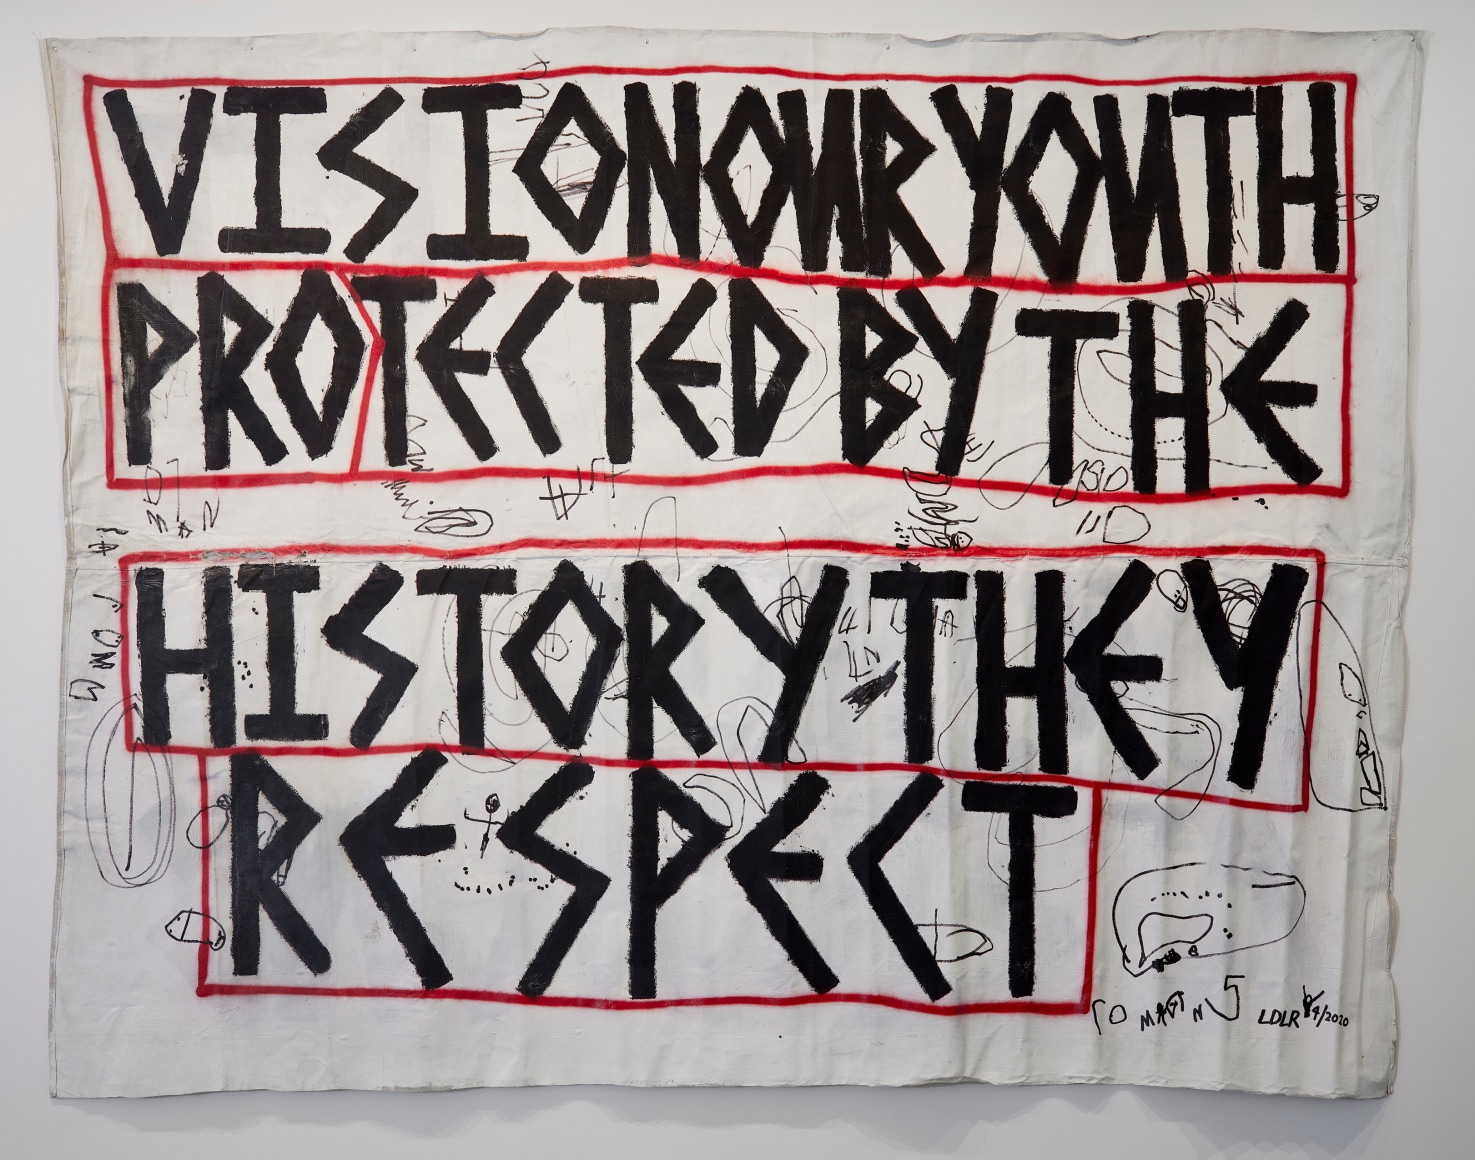 VISION OUR YOUTH
PROTECTED BY THE
HISTORY THEY
RESPECT
LDLR 4/2020